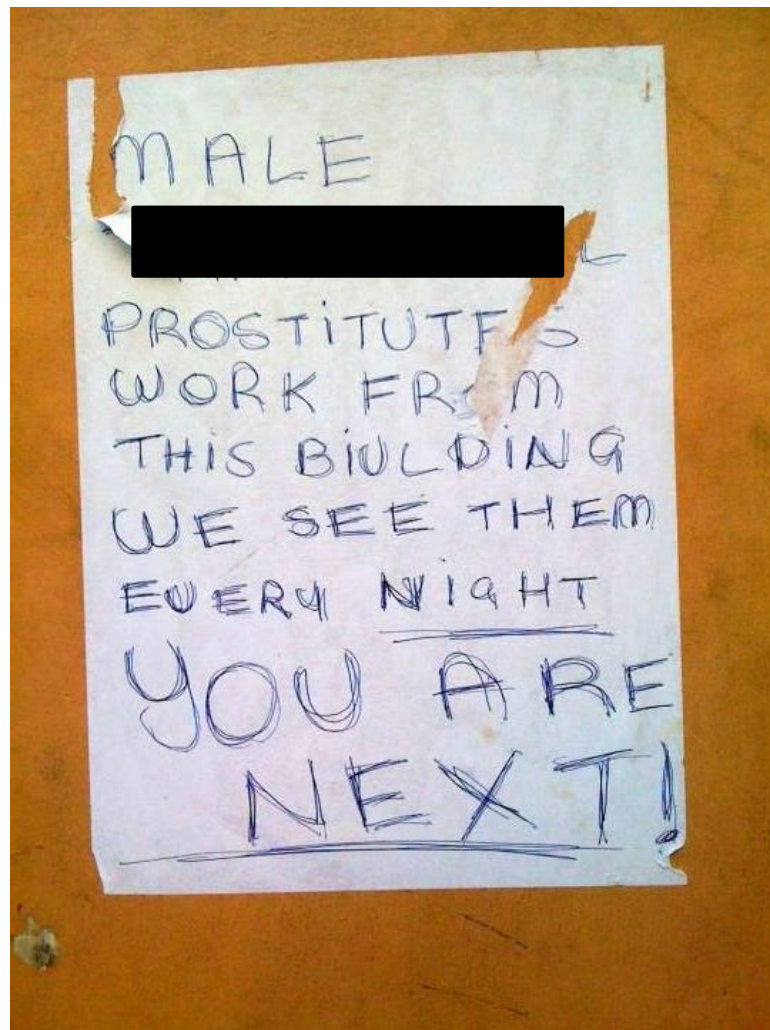 MALE
PROSTITUTES
WORK FROM
THIS BIULDING
WE SEE THEM
EVERY NIGHT
YOU ARE
NEXT!